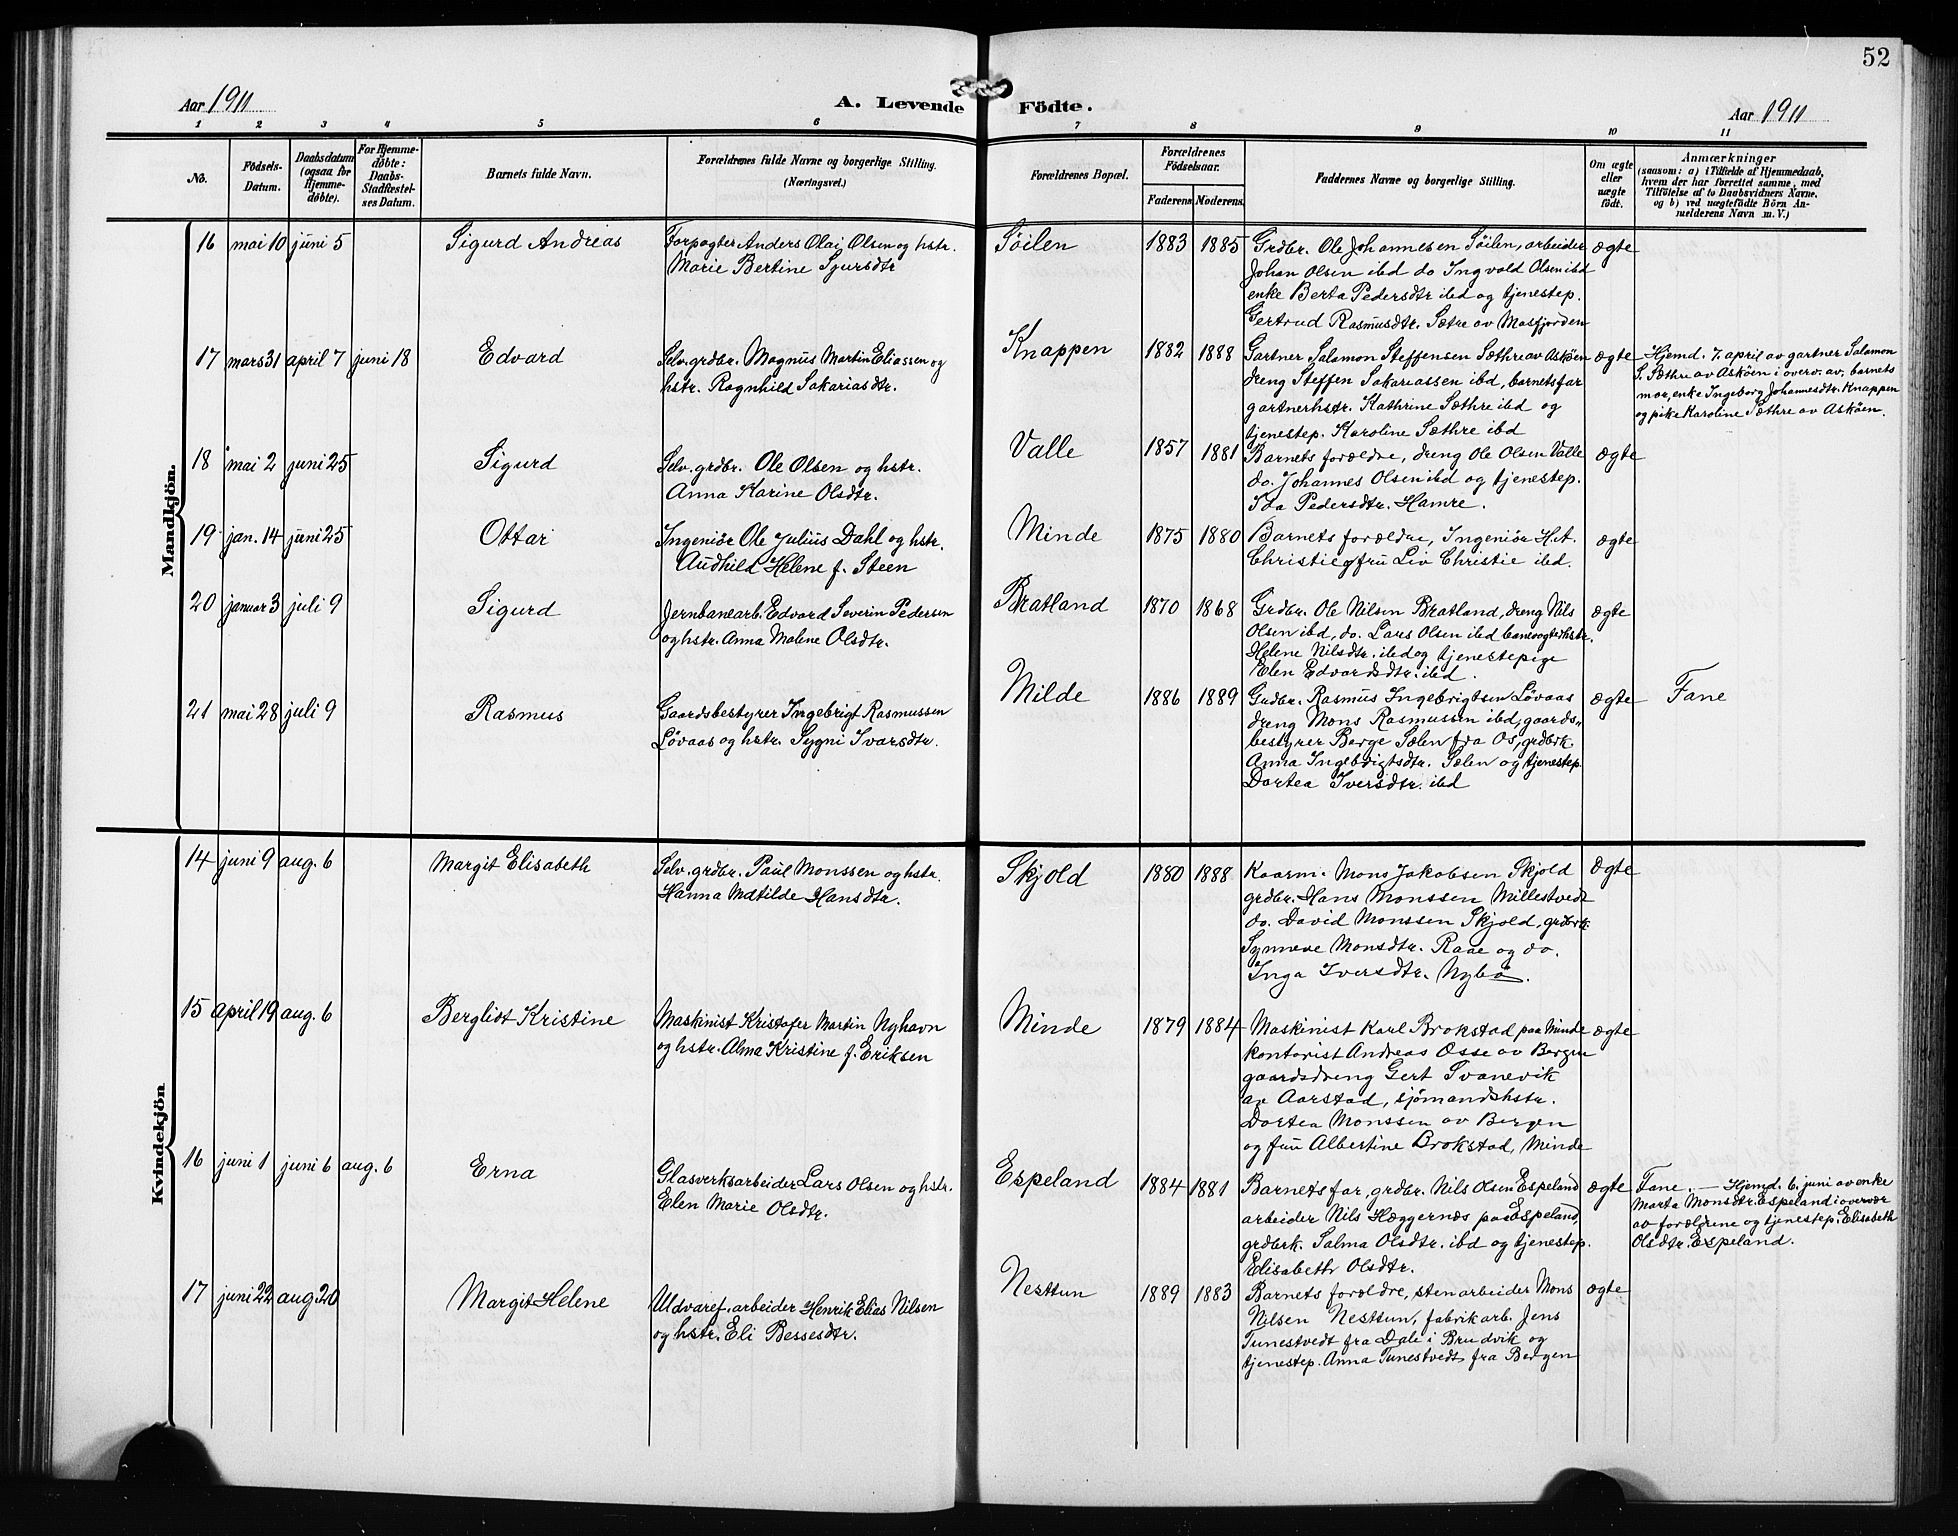 52
Aar 1911
A. Levende Födte.
Aar 1911
1 2 3 4 5 6 7 8 9 10 11
No.
Födsels-
Datum.
Daabsdatum
(ogsaa for
Hjemme-
döbte).
For Hjemme-
döbte:
Daabs-
Stadfæstel-
ses Datum.
Barnets fulde Navn.
Forældrenes fulde Navne og borgerlige Stilling.
(Næringsvei.)
Forældrenes Bopæl.
Forældrenes
Födselsaar.
Faderens Moderens
Faddernes Navne og borgerlige Stilling.
Om ægte
eller
uægte
födt.
Anmærkninger
(saasom: a) i Tilfælde af Hjemmedaab,
hvem der har forrettet samme, med
Tilföielse af to Daabsvidners Navne,
og b) ved uægtefödte Börn An-
melderens Navn m. V.)
Mandkjön.
16 mai 10 juni 5 Sigurd Andreas
Forpagter Anders Olai Olsen og hstr.
Marie Bertine Sjursdtr
Söilen 1883 1885
Grdbr. Ole Johannesen Söilen, arbeider
Johan Olsen ibd do Ingvald Olsen ibd
enke Berta Pedersdtr ibd og tjenestep.
Gertrud Rasmusdtr. Sætre av Masfjorden
ægte
17 mars 31 april 7 juni 18 Edvard
Selv. grdbr. Magnus Martin Eliassen og
hstr. Ragnhild Sakariasdtr.
Knappen 1882 1888
Gartner Salamon Steffensen Sæthre av Asköen
dreng Steffen Sakariassen ibd, barnets far
gartnerhstr. Kathrine Sæthre ibd og
tjenestep. Karoline Sæthre ibd
ægte
Hjemd. 7. april av gartner Salamon
S. Sæthre av Asköen i overv. av barnets
mor, enke Ingeborg Johannesdtr. Knappen
og pike Karoline Sæthre av Asköen.
18 mai 2 juni 25 Sigurd
Selv. grdbr. Ole Olsen og hstr.
Anna Karine Olsdtr.
Valle 1857 1881
Barnets forældre, dreng Ole Olsen Valle
do. Johannes Olsen ibd og tjenestep.
Ida Pedersdtr. Hamre.
ægte
19 jan. 14 juni 25 Ottar
Ingeniör Ole Julius Dahl og hstr.
Audhild Helene f. Steen
Minde 1875 1880
Barnets forældre, Ingeniör Hit.
Christie og fru Liv Christie ibd.
ægte
20 januar 3 juli 9 Sigurd
Jernbanearb. Edvard Severin Pedersen
og hstr. Anna Malene Olsdtr.
Bratland 1870 1868
Grdbr. Ole Nilsen Bratland, dreng Nils
Olsen ibd, do. Lars Olsen ibd banevogterhstr.
Helene Nilsdtr. ibd og tjenestepige
Elen Edvardsdtr. ibd.
ægte
21 mai 28 juli 9 Rasmus
Gaardsbestyrer Ingebrigt Rasmussen
Lövaas og hstr. Sygni Ivarsdtr.
Milde 1886 1889
Grdbr. Rasmus Ingebrigtsen Lövaas
dreng Mons Rasmussen ibd, gaards-
bestyrer Berge Sælen fra Os, grdbrk.
Anna Ingebrigtsdtr. Sælen og tjenestep.
Dortea Iversdtr. ibd
ægte
Fane
Kvindekjön
14 juni 9 aug. 6 Margit Elisabeth
Selv. grdbr. Paul Monssen og hstr.
Hanna Matilde Hansdtr.
Skjold 1880 1888
Kaarm. Mons Jakobsen Skjold
grdbr. Hans Monssen Millestvedt
do. David Monssen Skjold, grdbrk.
Synneve Monsdtr. Raae og do.
Inga Iversdtr. Nybö.
Ægte
15 april 19 aug. 6 Bergliot Kristine
Maskinist Kristofer Martin Nyhavn
og hstr. Alma Kristine f. Eriksen
Minde 1879 1884
Maskinist Karl Brokstad paa Minde
kontorist Andreas Osse av Bergen
gaardsdreng Gert Svanevik
av Aarstad, sjömandshstr.
Dortea Monssen av Bergen
og fru Albertine Brokstad, Minde
ægte
16 juni 1 juni 6 aug. 6 Erna
Glasverksarbeider Lars Olsen og hstr.
Elen Marie Olsdtr.
Espeland 1884 1881
Barnets far, grdbr. Nils Olsen Espeland
arbeider Nils Hæggernæs paa Espeland,
grdbrk. Salma Olsdtr. ibd og tjenestep.
Elisabeth Olsdtr.
ægte
Fane. — Hjemd. 6. juni av enke
Marta Monsdtr. Espeland i overvær
av forældrene og tjenestep. Elisabeth
Olsdtr. Espeland.
17 juni 22 aug. 20 Margit Helene
Uldvaref. arbeider Henrik Elias Nilsen
og hstr. Eli Bessesdtr.
Nesttun 1889 1883
Barnets forældre, stenarbeider Mons
Nilsen Nesttun, fabrikarb. Jens
Tunestvedt fra Dale i Brudvik og
tjenestep. Anna Tunestvedt fra Bergen
ægte